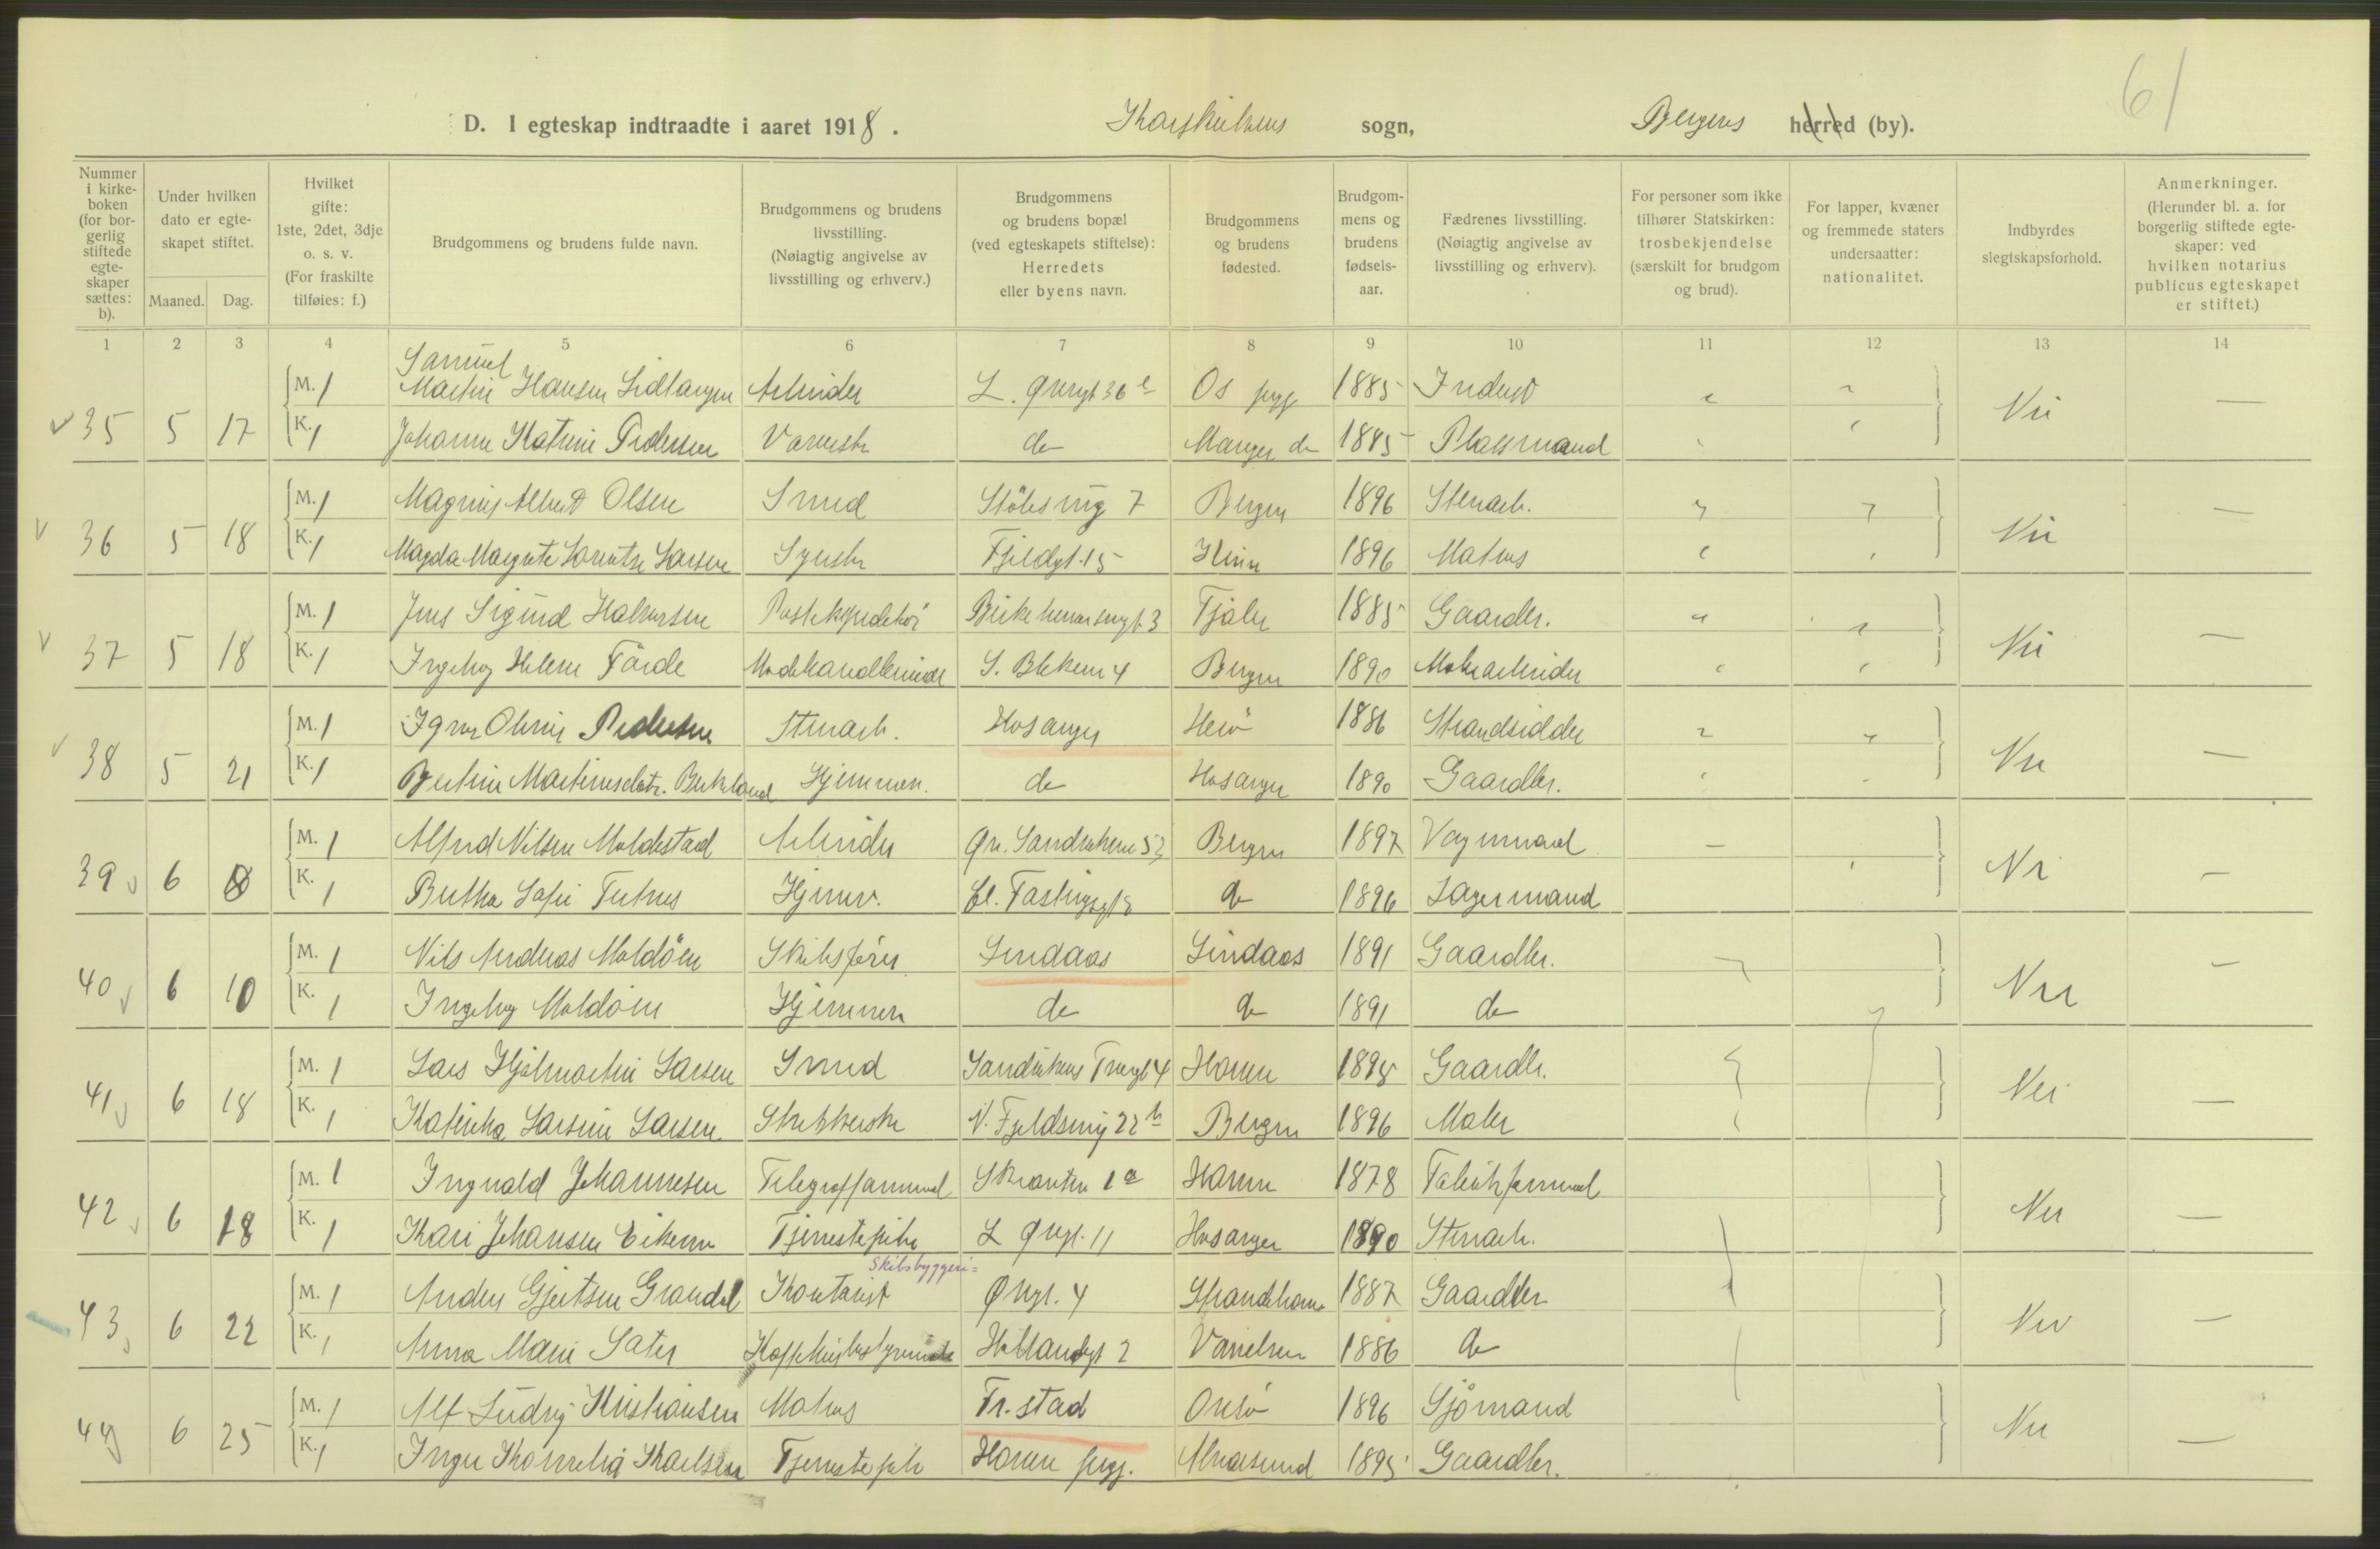 61
D. I egteskap indtraadte i aaret 1918. Korskirkens sogn, Bergens herred (by).
Nummer i kirkeboken (for borgerlig stiftede egteskaper sættes: b).
Under hvilken dato er egteskapet stiftet.
Maaned. Dag.
Hvilket gifte: 1ste, 2det, 3dje o. s. v. (For fraskilte tilføies: f.)
Brudgommens og brudens fulde navn.
Brudgommens og brudens livsstilling. (Nøiagtig angivelse av livsstilling og erhverv.)
Brudgommens og brudens bopæl (ved egteskapets stiftelse): Herredets eller byens navn.
Brudgommens og brudens fødested.
Brudgommens og brudens fødselsaar.
Fædrenes livsstilling. (Nøiagtig angivelse av livsstilling og erhverv).
For personer som ikke tilhører Statskirken: trosbekjendelse (særskilt for brudgom og brud).
For lapper, kvæner og fremmede staters undersaatter: nationalitet.
Indbyrdes slegtskapsforhold.
Anmerkninger. (Herunder bl. a. for borgerlig stiftede egteskaper: ved hvilken notarius publicus egteskapet er stiftet.)
1 2 3 4 5 6 7 8 9 10 11 12 13 14
Samuel
M. 1 Martin Hansen Lidtangen Arbeider L. Øvregt 36 Os 1885 Inderst
35 5 17 Nei —
K. 1 Johanne Katrine Pedersen Væverske do Manger do 1885 Plassmand
M. 1 Magnus Albert Olsen Smed Stölesmg 7 Bergen 1896 Stenarb.
36 5 18 Nei —
K. 1 Magda Margrete Larentse Larsen Syerske Fjeldgt. 15 Kinn 1896 Matros
M. 1 Jens Sigurd Halvorsen Postekspeditör Birkebeinersengt 3 Fjaler 1885 Gaardbr.
37 5 18 Nei —
K. 1 Ingeborg Helene Förde Modehandlerinde S. Blekevei 4 Bergen 1890 Malerarbeider
M. 1 Olsen Pedersen Stenarb. Hosanger Herö 1886 Strandsidder
38 5 21 Nei —
K. 1 Bertine Martinusdatr. Birkeland Hjemmev. do Hosanger 1890 Gaardbr.
M. 1 Alfred Nilsen Moldestad Arbeider Øvr. Sandviksvei 52 Bergen 1897 Vognmand
39 6 8 Nei —
K. 1 Bertha Sofie Hjemmev. Cl. Fastingsgt 8 do 1896 Lagermand
M. 1 Nils Andreas Moldöen Skibsförer Lindaas Lindaas 1891 Gaardbr.
40 6 10 Nei —
K. 1 Ingeborg Moldöen Hjemmev do do 1891 do
M. 1 Lars Hjelmartin Larsen Smed Sandvikens 4 Hamre 1898 Gaardbr.
41 6 18 Nei —
K. 1 Katinka Larsine Larsen Strikkerske N. Fjeldsmug 22 b Bergen 1896 Maler
M. 1 Ingvald Johannesen Telegrafformand Skanten 1 a Hamre 1878 Fabrikformand
42 6 18 Nei —
K. 1 Kari Johansen Eikemo Tjenestepike L Øvregt. 11 Hosanger 1890 Stenarb.
Skibsbyggeri=
M. 1 Anders Gjertsen Grandal Kontorist Øvregt. 4 Strandebarm 1887 Gaardbr
43 6 22 Nei —
K. 1 Anna Marie Sater Kaffehusbestyrerinde Hollendergt 2 Vanelven 1886 do
M. 1 Alf Ludvig Kristiansen Matros Fr.stad Onsö 1896 Sjömand
44 6 25 Nei —
K. 1 Inger Kornelia Karlsen Tjenestepike Hamre pgj. Alversund 1895 Gaardbr.